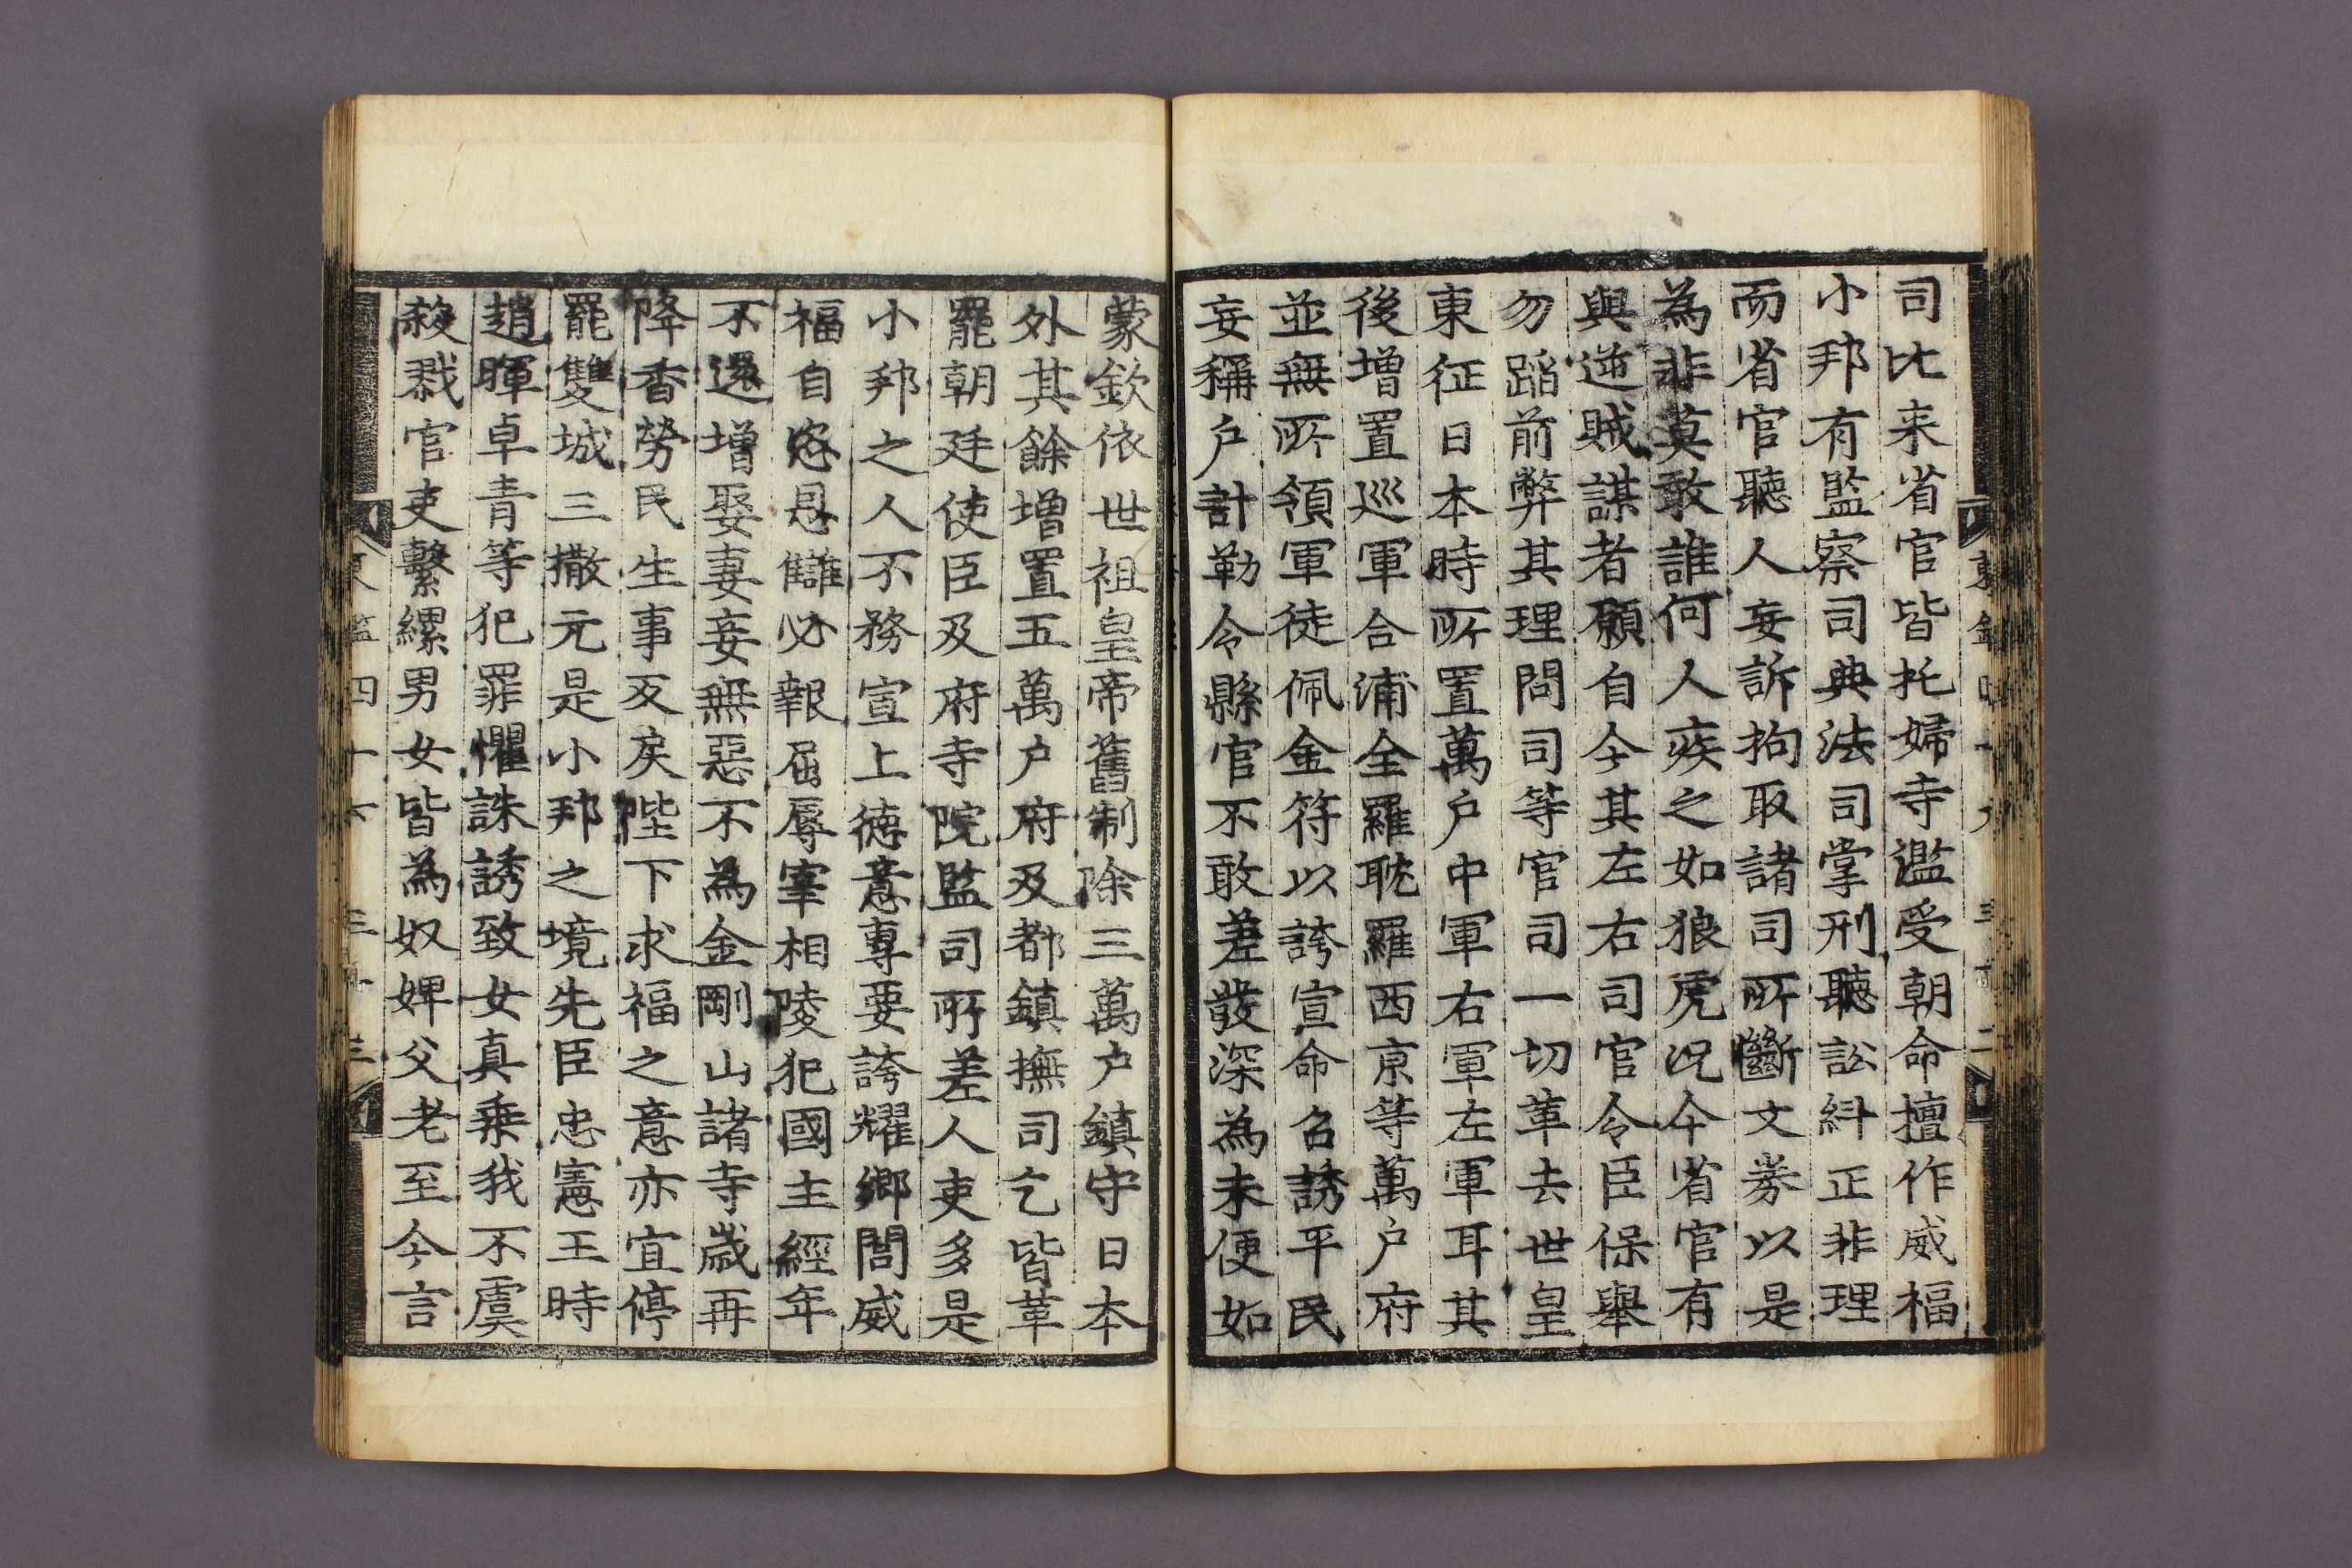 司比来省官皆托婦寺濫受朝命擅作威福
小邦有監察司典法司掌刑聽訟糾正非理
而省官聽人妄訴拘取諸司所斷文券以是
為非莫敢誰何人疾之如狼虎况今省官有
與逆賊謀者願自今其左右司官令臣保舉
勿蹈前弊其理問司等官司一切革去世皇
東征日本時所置萬户中軍右軍左軍耳其
後增置巡軍合浦全羅耽羅西京等萬户府
並無所領軍徒佩金符以誇宣命召誘平民
妄稱户計勒令縣官不敢差發深為未便如
蒙欽依世祖皇帝舊制除三萬户鎮守日本
外其餘增置五萬户府及都鎮撫司乞皆革
罷朝廷使臣及府寺院監司所差人吏多是
小邦之人不務宣上德意專要誇耀鄉閭威
福自恣恩讎必報屈辱宰相陵犯國主經年
不還增娶妻妾無惡不為金剛山諸寺歲再
降香勞民生事反戾陛下求福之意亦宜停
罷雙城三撒元是小邦之境先臣忠憲王時
趙暉卓青等犯罪懼誅誘致女真乘我不虞
殺戮官吏繫縲男女皆為奴婢父老至今言